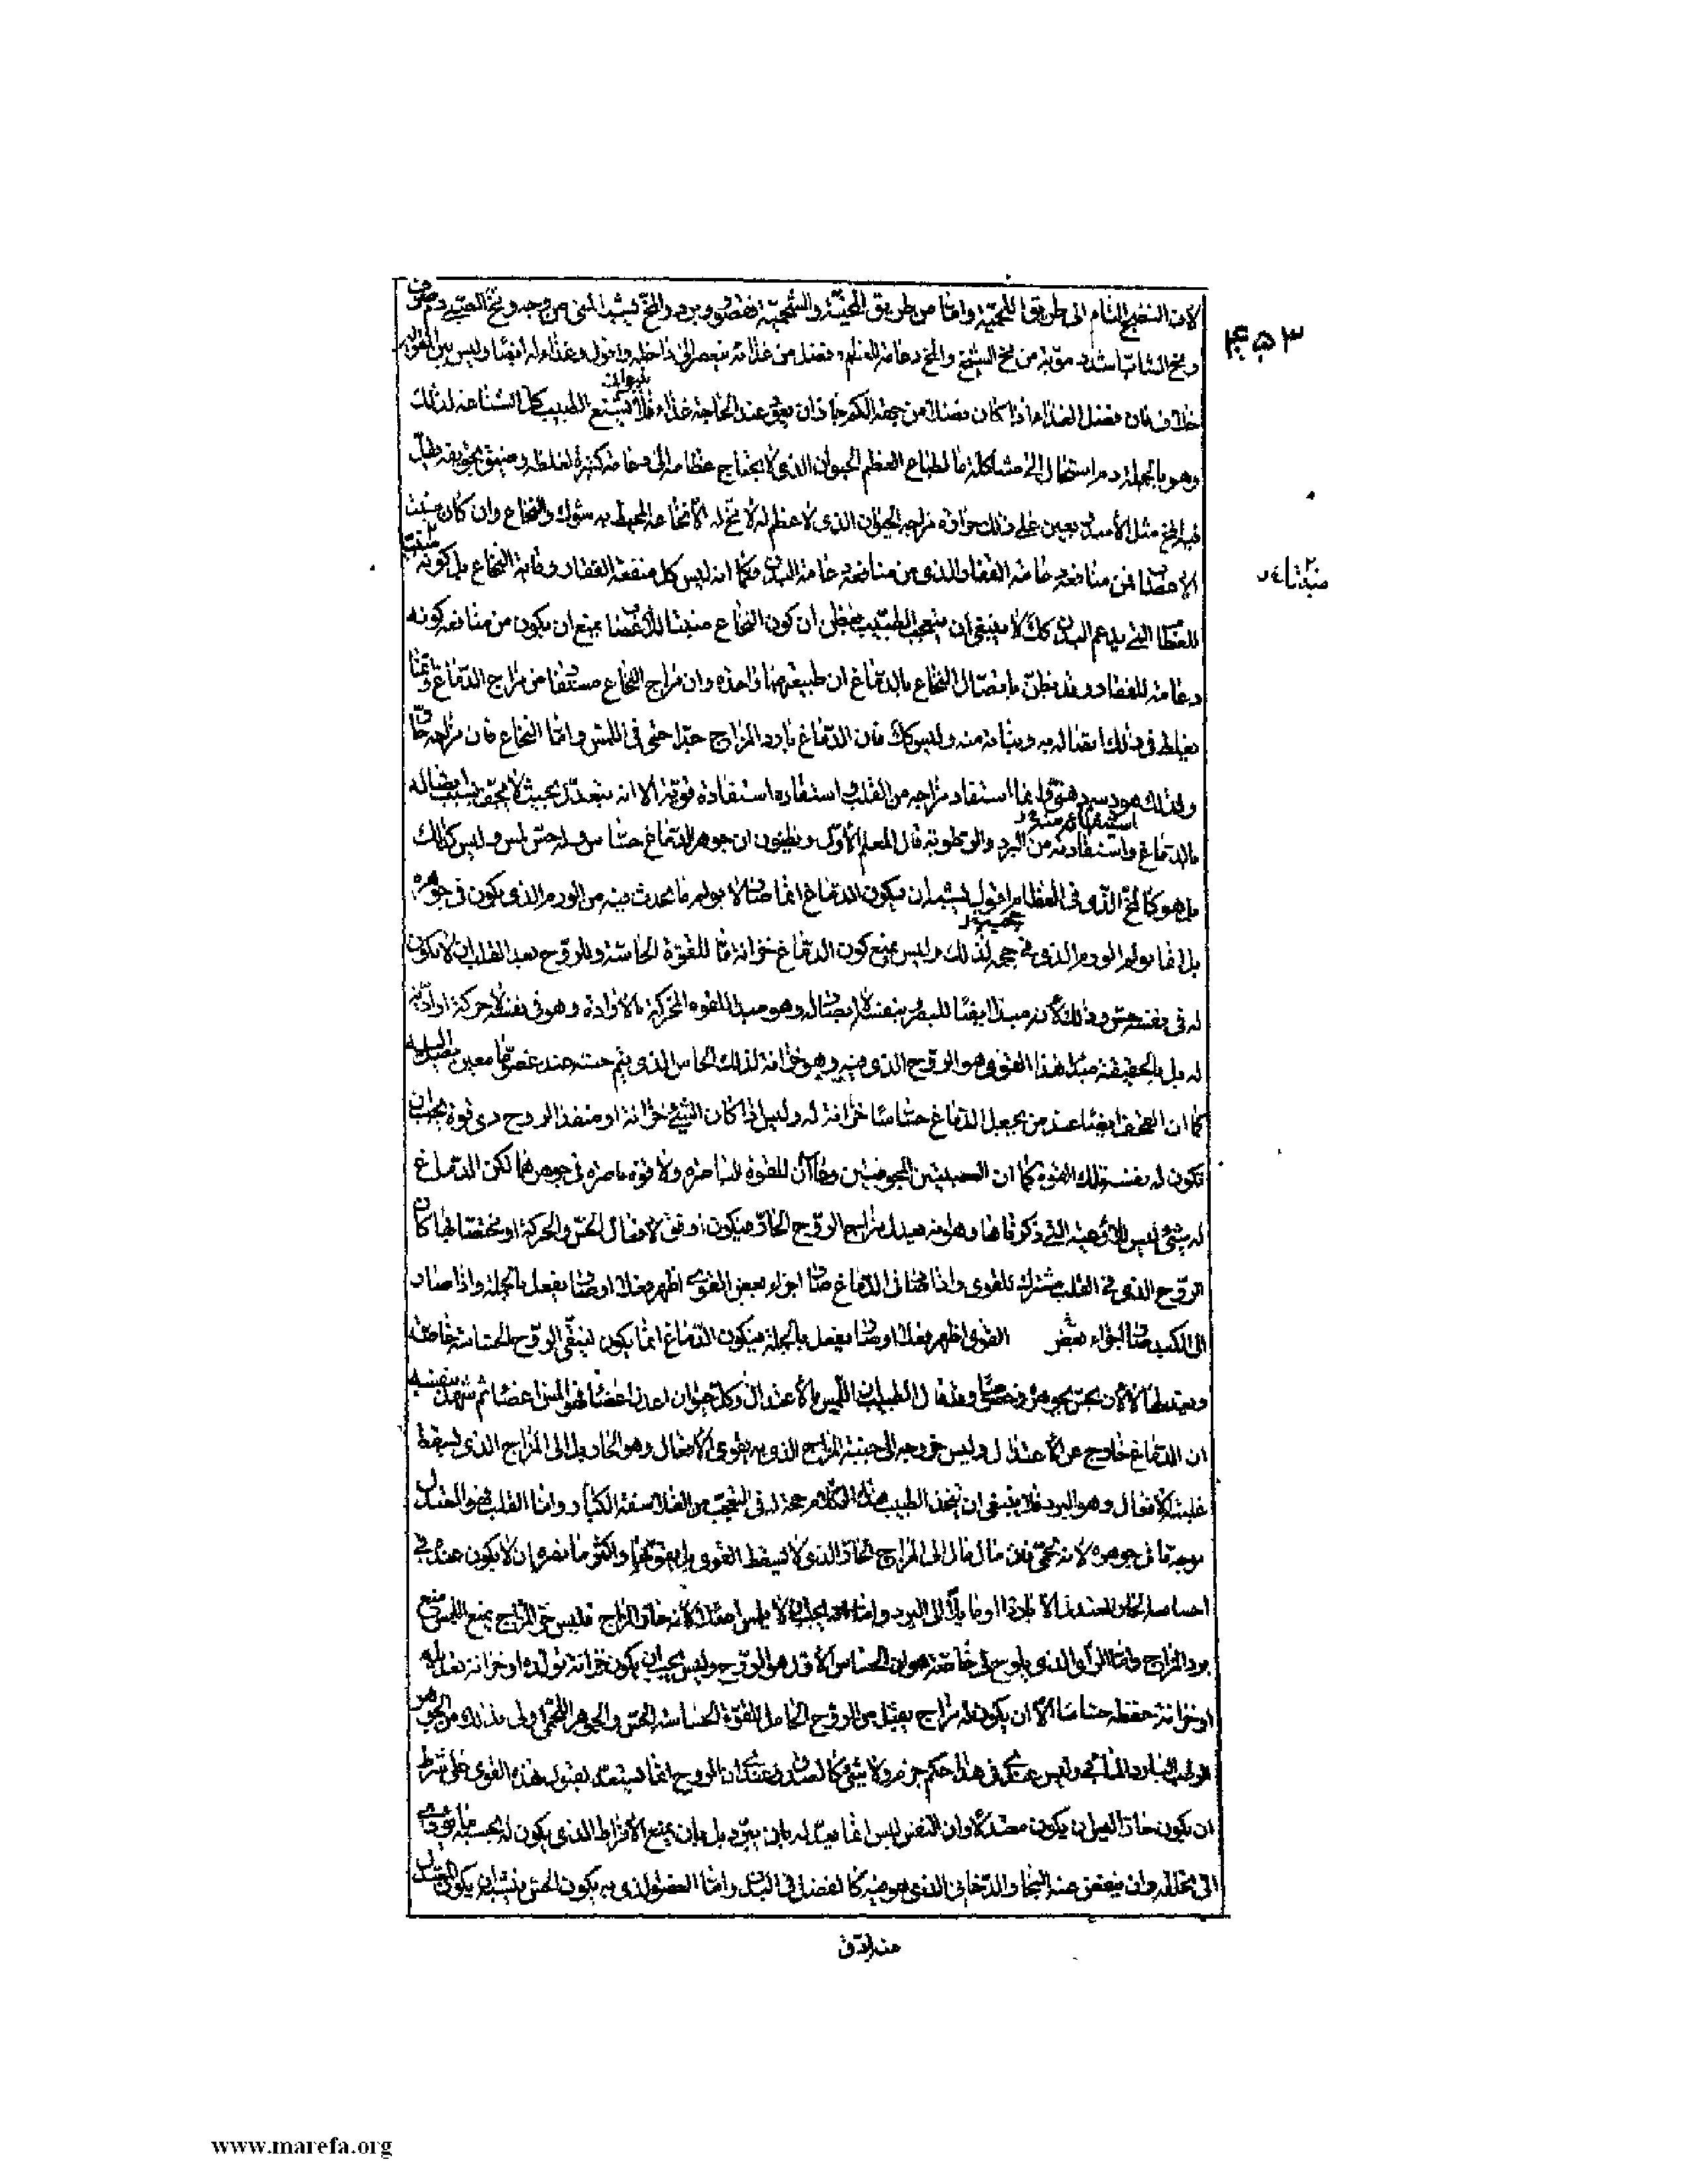 ۴۵۳
لان النضج التام الى طريق اللحمية واما من طريق المخية والشحمية فقصور وبرد والمخ يشبه المنى من وجه ومخ الصبى دموى
ومخ الشاب اشد دموية من مخ الشيخ والمخ دعامة العظم وفضل من غذائه ينعصر الى داخله واقول وغذاء له ايضا وليس بين القولين
خلاف فان فضل الغذاء اذا كان فضلا من جهة الكم جاز ان يبقى عند الحاجة غذاء فلا يشنع الطبيب كل الشناعة لذلك
وهو بالجملة دم استحال الى مشاكلة ما لطباع العظم الحيوان الذى لا يحتاج عظامه الى دعامة كثيرة لغلظه وضيق تجويفه يقل
فيه المخ مثل الأسد يعين على ذلك حرارة مزاجه الحيوان الذى لا عظم له لا مخ له الا نخاعه المحيط به شوك والنخاع وان كان منبت
الاعصاب فمن منافعه دعامة الفقار الذى من منافعه دعامة البدن فكما انه ليس كل منفعة الفقار وقاية النخاع بل كونه
منبتا ر
للعظام التى يدعم البدن كك لا ينبغى ان يتعجب الطبيب فيظن ان كون النخاع منبتا للاعصاب يمنع ان يكون من منافعه كونه
دعامة للفقار وقد يظن باتصال النخاع بالدماغ ان طبيعتهما واحدة وان مزاج النخاع مستفاد من مزاج الدماغ وانما
يغلط فى ذلك اتصاله به ونباته منه وليس كك فان الدماغ بارد المزاج جدا حتى فى اللمس واما النخاع فان مزاجه حار
ولذلك هو دسم دهنى وانما استفاد مزاجه من القلب واستفاده استفادة قوية الا انه يتعدل بحيث لا يحترق بسبب اتصاله
بالدماغ واستفادته من البرد والرطوبة قال المعلم الأول ويظنون ان جوهر الدماغ حساس وله حس لمس وليس كذلك
بل هو كالمخ الذى فى العظام اقول يشبه ان يكون الدماغ انما صار لا يولم ما يحدث فيه من الورم الذى يكون فى جوهره
بل انما يولم الورم الذى فى حجبه لذلك وليس يمنع كون الدماغ خزانة ما للقوة الحاسة وللروح بعد القلب ان لا يكون
له فى نفسه حس وذلك لأنه مبدأ ايضا للبصر بنفسه لا ابصار له وهو مبدأ للقوة المحركة بالارادة وهو فى نفسه لا حركة ارادية
له بل بالحقيقة مبدأ هذا القوى هو الروح الذى فيه وهو خزانة لذلك الحاس الذى يتم حسه عند عضو ما معين
كما ان القحف ايضا عند من يجعل الدماغ حساسا خزانة له وليس اذا كان الشىء خزانة او منفذا لروح ذى قوة يجب ان
تكون له نفسه تلك القوة كما ان العصبتين المجوفتين وعاآن للقوة الباصرة ولا قوة باصرة فى جوهرهما لكن الدماغ
له شىء ليس للأوعية التى ذكرناها وهو انه يعدل مزاج الروح الحار فيكون اوفق لافعال الحس والحركة او تخصصا فيها كان
الروح الذى فى القلب مشترك للقوى واذا حصل فى الدماغ صار اجزاء بعض القوى اظهر فعلا او صار يفعل بالجملة واذا صار
الى الكبد صار اجزاء بعض القوى اظهر فعلا او صار يفعل بالجملة فيكون الدماغ انما يكون لينقى الروح الحساسة خاصة
ويعدلها لا لأن يحس بجوهره وقد قال الطبيب ان اللمس بالاعتدال وكل حيوان اعدل اعضاء فهو المس اعضاء ثم شهد بنفسه
ان الدماغ خارج عن الاعتدال وليس خروجه الى جنبة المزاج الذى به يقوى الافعال وهو الحار بل الى المزاج الذى يسقط
غلبته الافعال وهو البرد فلا ينبغى ان يتخذ الطبيب هذا الكلام حجة له فى التعجب من الفلاسفة الكبار واما القلب فهو المعتدل
بوجه ما فى جوهره لانه لحمى فان مال مال الى المزاج الحار الذى لا يسقط القوى بل يقويها واكثر ما نضره ان لا يكون عنده فى
احساسه الحار المعتدل الا باردا او مايلا الى البرد واما انه يجب ان لا يلمس اصلا لانه حار المزاج فليس حر المزاج يمنع اللمس منع
برد المزاج واما الرأى الذى يلوح لى خاصة هو ان الحساس الاول هو الروح وليس يجب ان يكون خزانة تولده او خزانة تعديله
او خزانة حفظه حساسا الا ان يكون له مزاج يقبل من الروح الحامل للقوة الحساسة الحس والجوهر اللحمى اولى بذلك من الجوهر
الرطب البارد المائى وليس عندى فى هذا حكم جزم ولا يبقى كالصدق عندى ان الروح انما يستعد لقبول هذه القوى على شرط
ان يكون حارا لعله ان يكون معتدلا وان النفس ليس انما يعدله بان يبرد بل بان يمنع الافراط الذى يكون له بحبسه ما يحتاج
الى تحلله وان ينفض عنه البخار الدخانى الذى هو فيه كالفضل فى البدن واما العضو الذى به يكون الحس فيشبه ان يكون المعتدل
منه اوفق
www.marefa.org